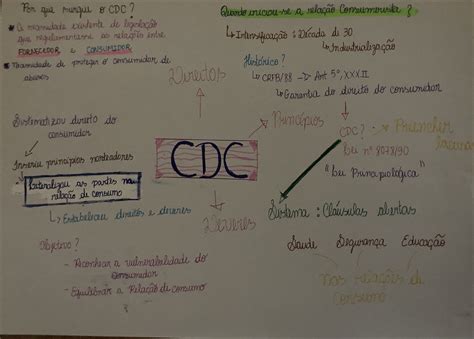 Por que surgiu o CDC?
A necessidade existente de legislação
que regulamentasse as relações entre
FORNECEDOR e CONSUMIDOR
Necessidade de proteger o consumidor de
abusos
Quando iniciou-se a relação Consumerista?
Intensificação: Década di 30
Industrialização
Histórico?
CRFB/88 → Art 5º, XXXII
Garantia do direito do consumidor
Direitos
Princípios
CDC
Deveres
CDC?
Preencher
lacunas
Lei nº 8078/90
"Lei Principiológica"
Sistema: Cláusulas abertas
Saúde Segurança Educação
Nas Relações de
Consumo
Sistematizou direito do
consumidor
Inseriu princípios norteadores
as partes na
relação de consumo
Estabeleceu direitos e deveres
Objetivo?
- Reconhecer a vulnerabilidade do
Consumidor
- Equilibrar a Relação de consumo